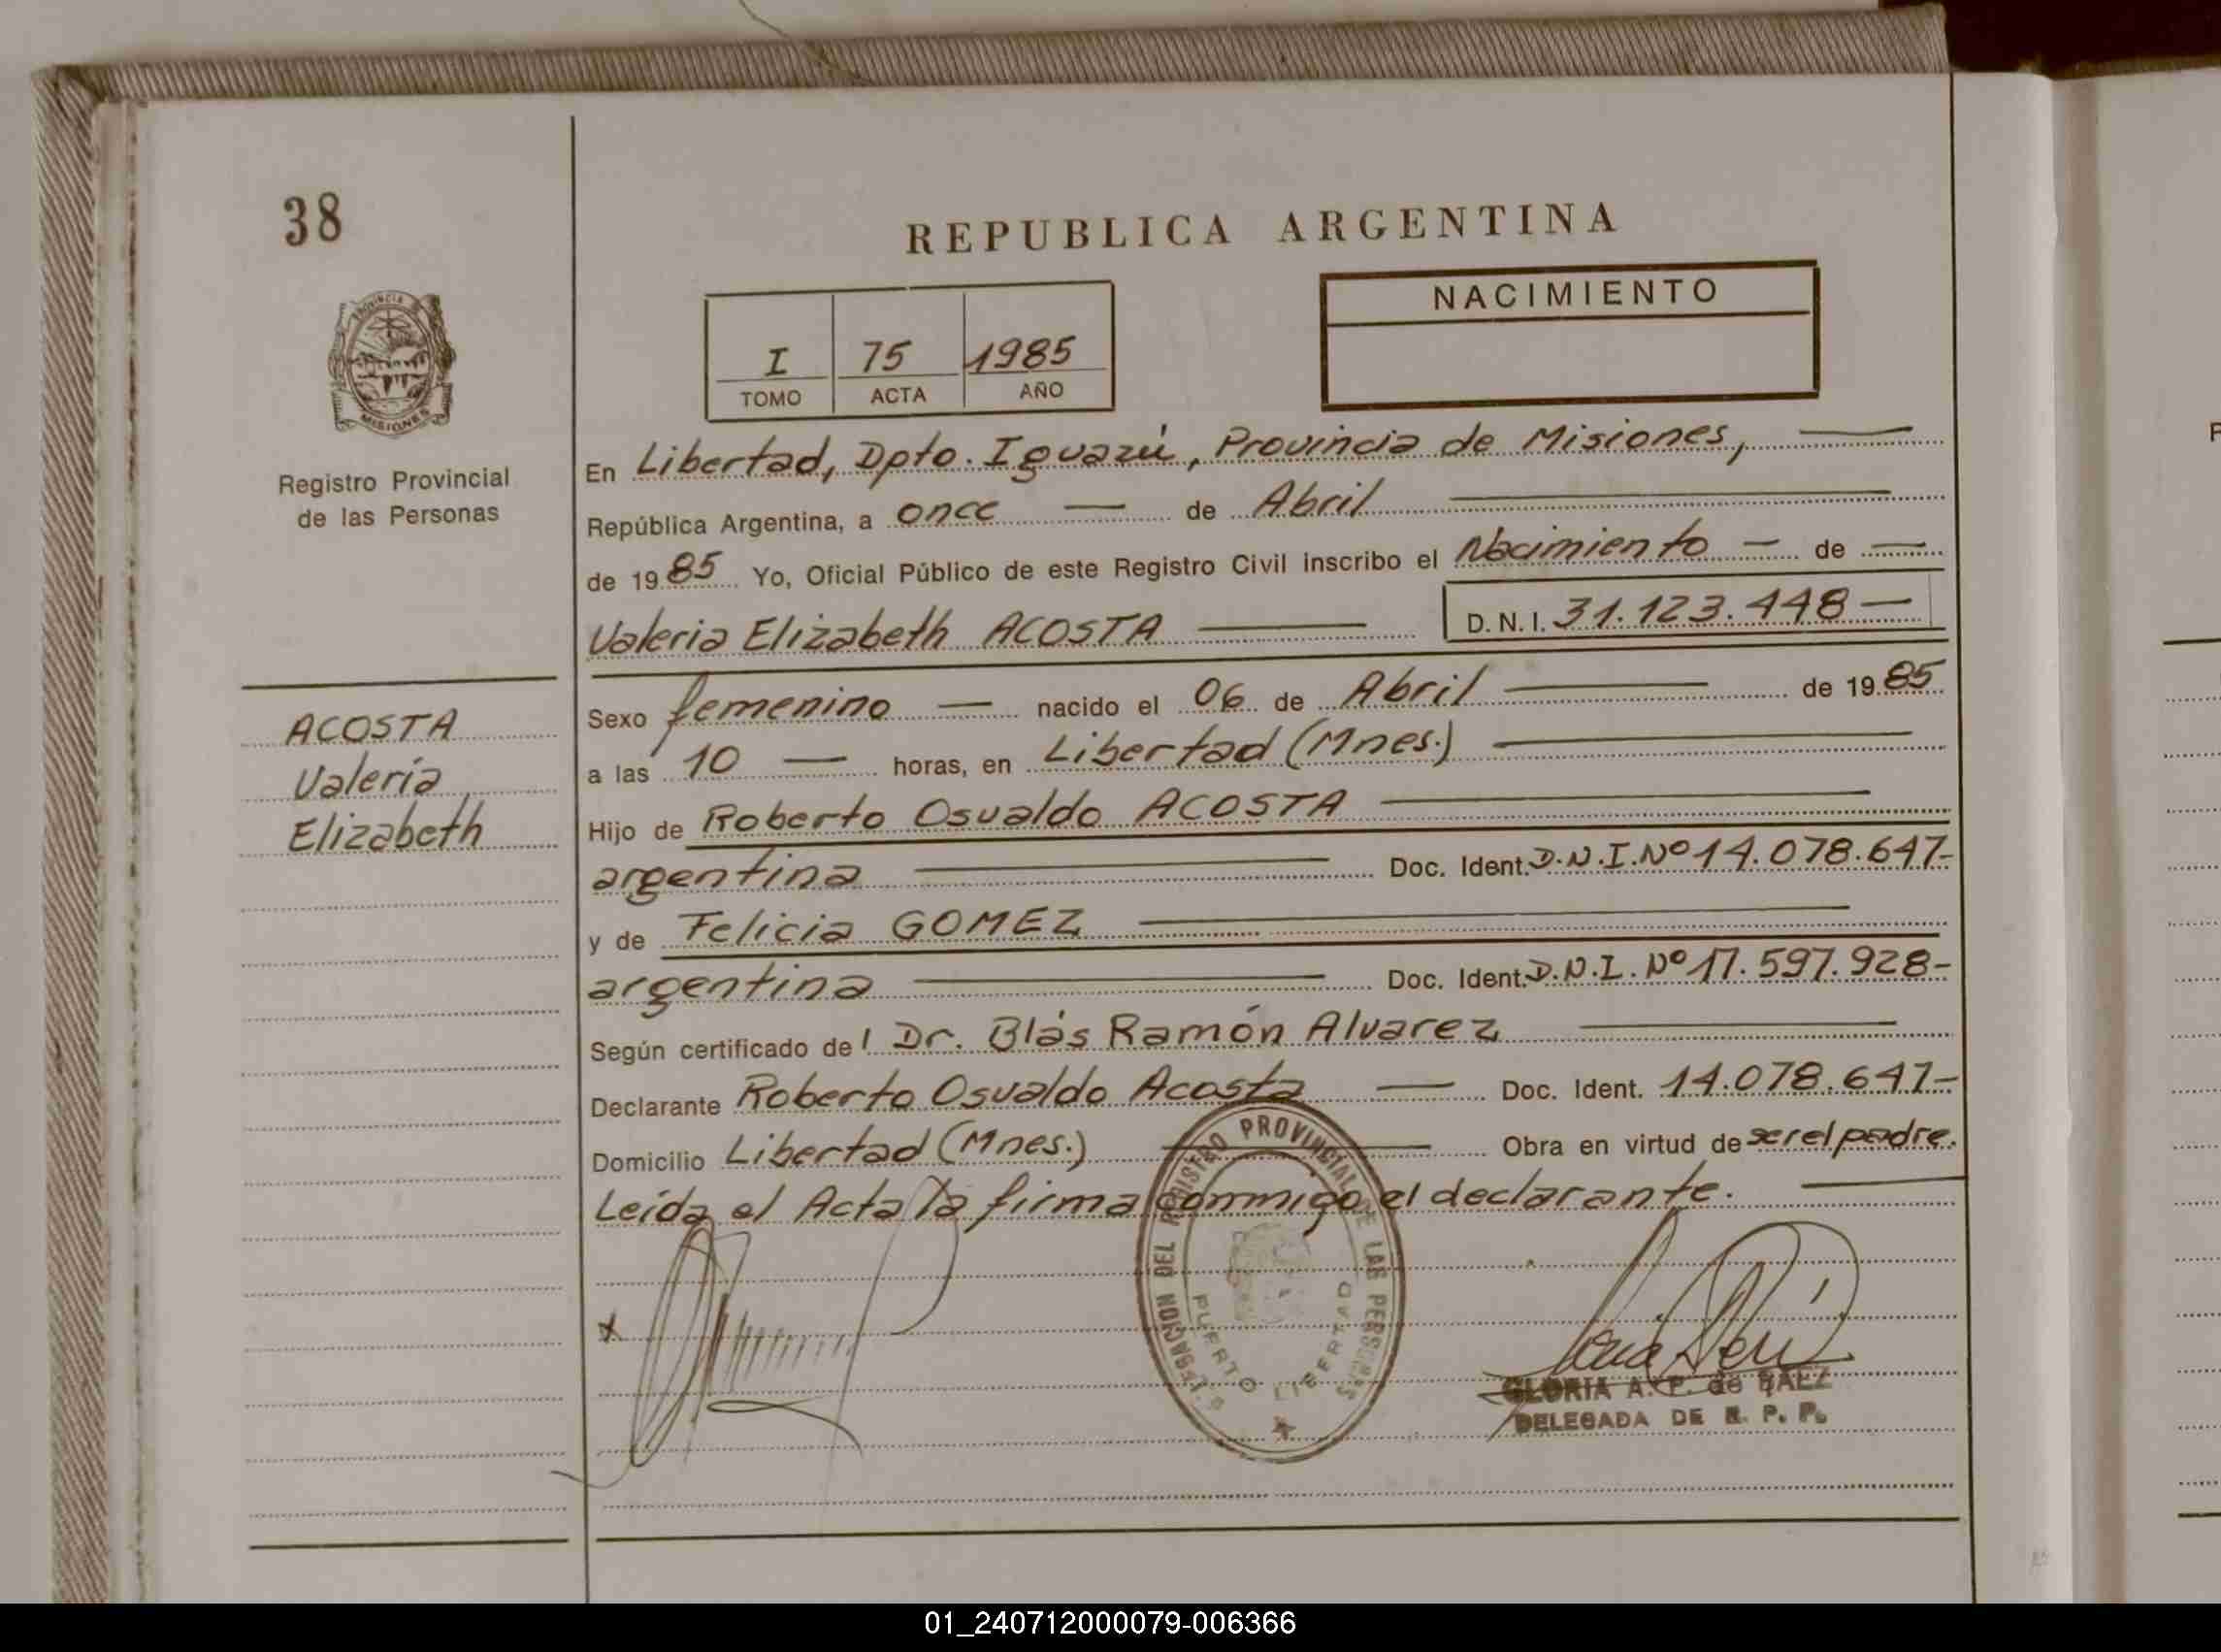 38
PROVINCIA
MISIONES
Registro Provincial
de las Personas
ACOSTA
Valeria
Elizabeth
REPUBLICA ARGENTINA
I 75 1985
TOMO ACTA AÑO
NACIMIENTO
En Libertad, Dpto. Iguazú, Provincia de Misiones,
República Argentina, a once de Abril
de 1985 Yo, Oficial Público de este Registro Civil inscribo el Nacimiento de
Valeria Elizabeth ACOSTA D.N.I. 31.123.448
Sexo femenino nacido el 06 de Abril de 1985
a las 10 horas, en Libertad (Mnes.)
Hijo de Roberto Osvaldo ACOSTA
argentina Doc. Ident. D.N.I. Nº 14.078.647-
y de Felicia GOMEZ
argentina Doc. Ident. D.N.I. Nº 17.597.928-
Según certificado del Dr. Blás Ramón Alvarez
Declarante Roberto Osvaldo Acosta Doc. Ident. 14.078.647-
Domicilio Libertad (Mnes.) Obra en virtud de ser el padre.
Leída el Acta la firma conmigo el declarante.
x
DELEGACION DEL REGISTRO PROVINCIAL DE LAS PERSONAS
PUERTO LIBERTAD
GLORIA A. P. de BAEZ
DELEGADA DE R. P. P.
01_240712000079-006366